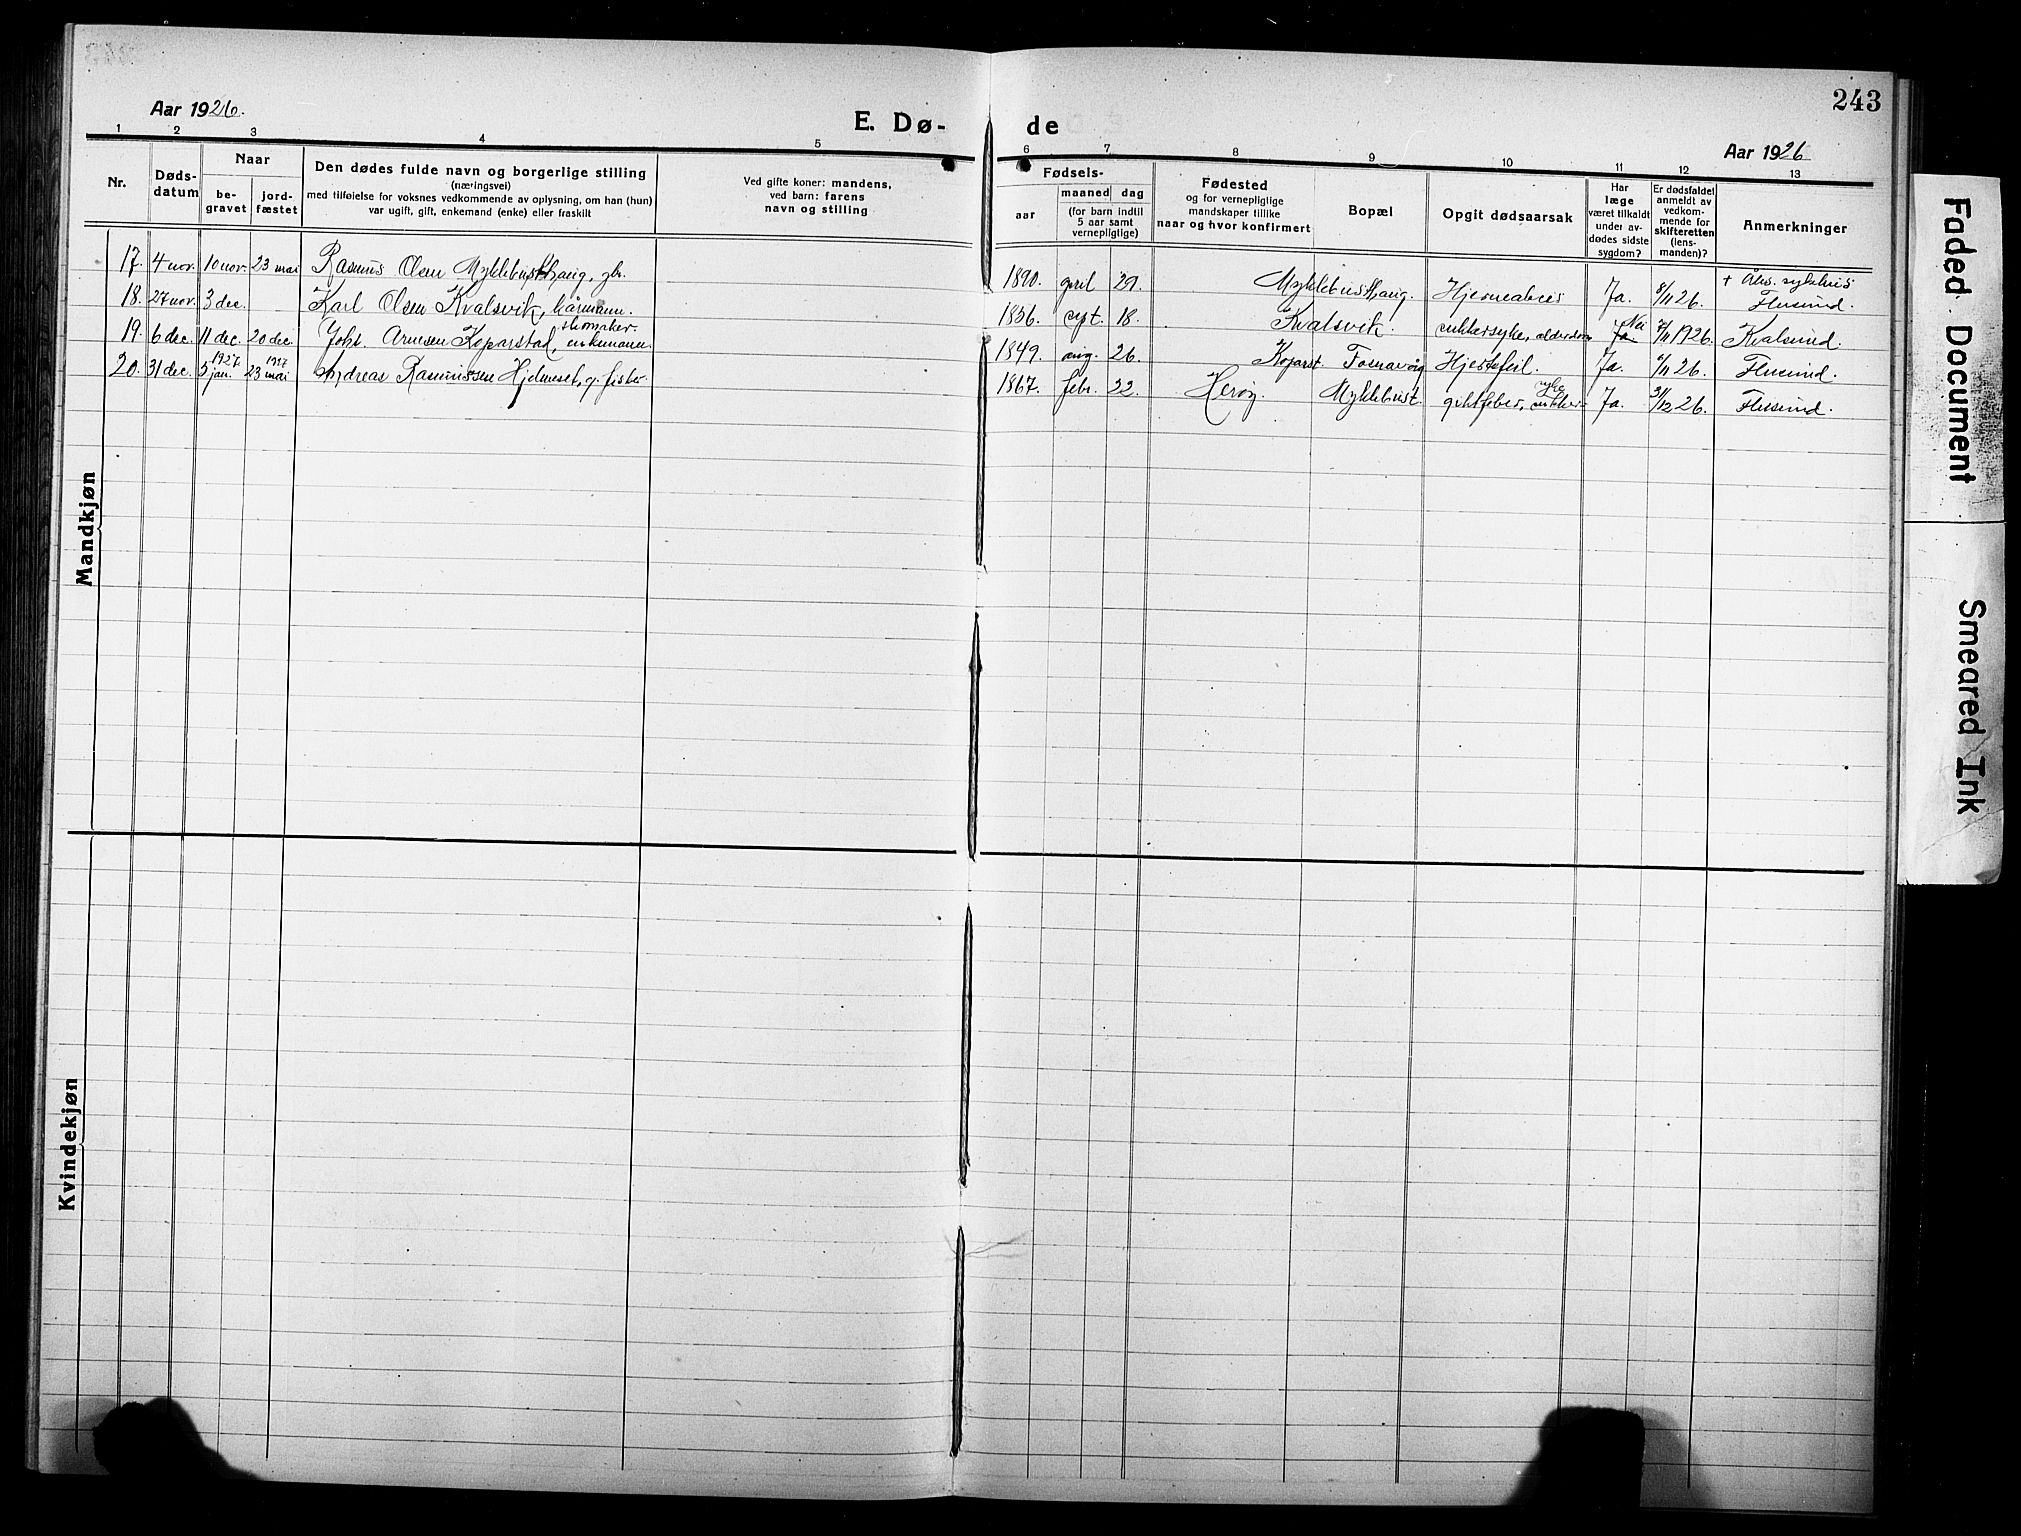 243
Aar 1926.
E. Dø- de
Aar 1926
1 2 3 4 5 6 7 8 9 10 11 12 13
Nr.
Døds-
datum
Naar
be-
gravet
jord-
fæstet
Den dødes fulde navn og borgerlige stilling
(næringsvei)
med tilføielse for voksnes vedkommende av oplysning, om han (hun)
var ugift, gift, enkemand (enke) eller fraskilt
Ved gifte koner: mandens,
ved barn: farens
navn og stilling
Fødsels-
aar
maaned dag
(for barn indtil
5 aar samt
vernepligtige)
Fødested
og for vernepligtige
mandskaper tillike
naar og hvor konfirmert
Bopæl
Opgit dødsaarsak
Har
læge
været tilkaldt
under av-
dødes sidste
sygdom?
Er dødsfaldet
anmeldt av
vedkom-
mende for
skifteretten
(lens-
manden)?
Anmerkninger
Mandkjøn
17. 4 nov. 10 nov. 23 mai Rasmus Olsen Myklebusthaug, 1890. april 29. Myklebusthaug. Ja. 8/11 26. + Åles. sykehus
Flusund.
18. 27 nov. 3 dec. Karl Olsen Kvalsvik, kårmann. 1856. sept. 18. Kvalsvik. sukkersyke, alderdom Nei Ja. 1926. Kvalsund.
19. 6 dec. 11 dec. 20 dec. Johs. Arnesen Koparstad, skomaker. enkemann. 1849. aug. 26. Koparst. Fosnavåg Hjertefeil. Ja. 26. Flusund.
20. 31 dec. 5 jan. 1927 23 mai 1927 Andreas Rasmussen Hjelmeset, g. fisker. 1867. febr. 22. Herøy. Myklebust. giktfeber, sukkersyke Ja. 31/12 26. Flusund.
Kvindekjøn
Faded Document
Smeared Ink